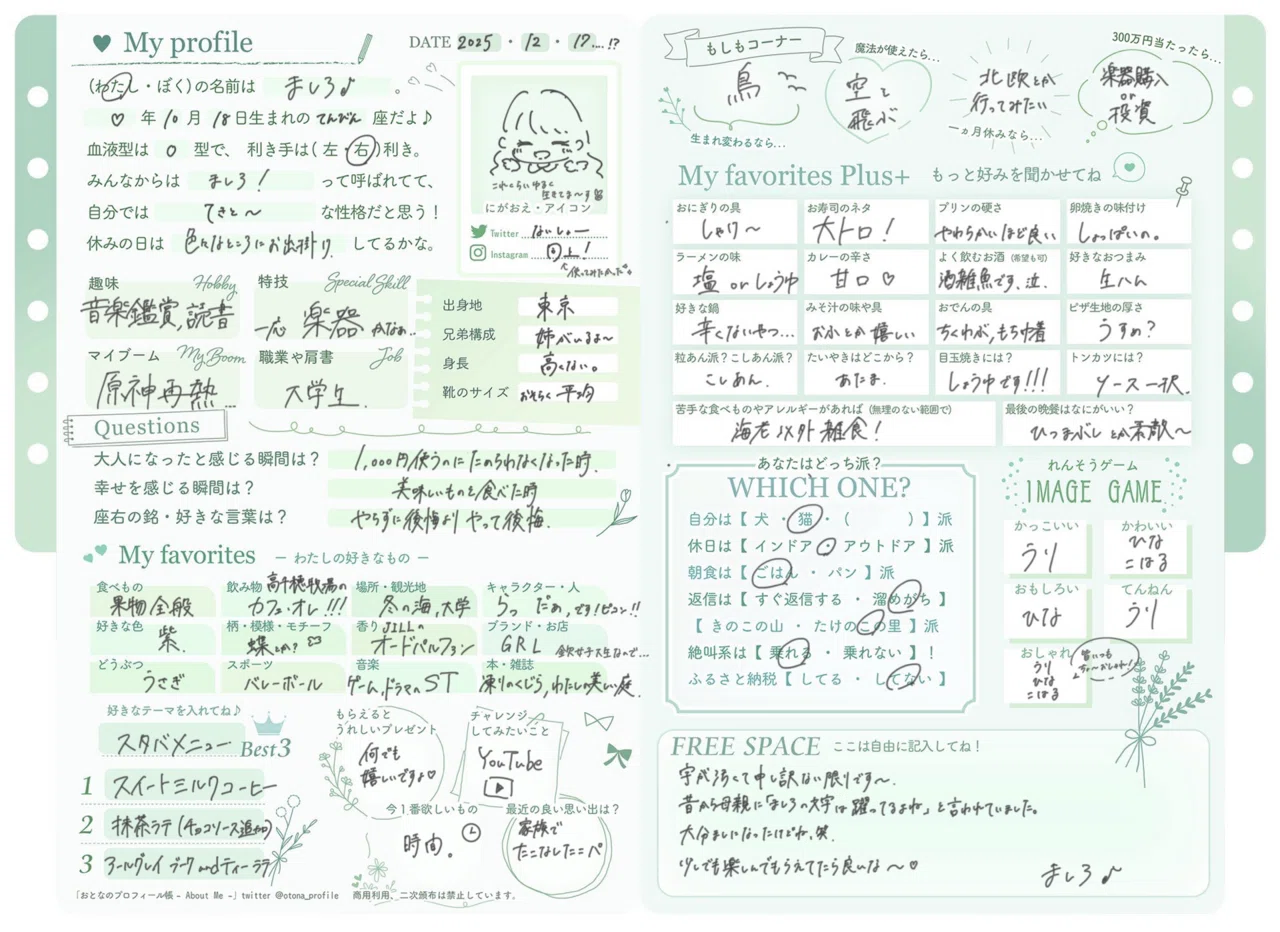 My profile
DATE 2025・12・17....!?
(わたし・ぼく)の名前は ましろ♪ 。
♡ 年 10 月 18 日生まれの てんびん 座だよ♪
血液型は O 型で、 利き手は( 左・右 )利き。
みんなからは ましろ! って呼ばれてて、
自分では てきと〜 な性格だと思う!
休みの日は 色んなところにお出掛け してるかな。
これくらいゆるく
生きてま〜す
にがおえ・アイコン
Twitter ないしょー
Instagram 同上!
使ってみたかった
趣味 Hobby
音楽鑑賞,読書
特技 Special Skill
一応 楽器 かなぁ..
マイブーム My Boom
原神再熱...
職業や肩書 Job
大学生.
出身地 東京
兄弟構成 姉がいるよ〜
身長 高くない。
靴のサイズ おそらく 平均
Questions
大人になったと感じる瞬間は? 1,000円使うのにためらわなくなった時.
幸せを感じる瞬間は? 美味しいものを食べた時
座右の銘・好きな言葉は? やらずに後悔より やって後悔.
My favorites ― わたしの好きなもの ―
食べもの
果物全般
飲み物 高千穂牧場の
カフェ・オレ!!!
場所・観光地
冬の海,大学
キャラクター・人
らっだぁ,です!ピュン!!
好きな色
紫.
柄・模様・モチーフ
蝶とか?
香り JILLの
オードパルファン
ブランド・お店
GRL 金欠女子大生なので...
どうぶつ
うさぎ
スポーツ
バレーボール
音楽
ゲーム,ドラマのST
本・雑誌
凍りのくじら,わたしの美しい庭.
好きなテーマを入れてね♪
スタバメニュー Best3
1 スイートミルクコーヒー
2 抹茶ラテ(チョコソース追加)
3 アールグレイ ブーケ and ティー ラテ
もらえると
うれしいプレゼント
何でも
嬉しいですよ♡
チャレンジ
してみたいこと
YouTube
今1番欲しいもの
時間。
最近の良い思い出は?
家族で
たこなしたこパ
「おとなのプロフィール帳 - About Me -」twitter @otona_profile 商用利用、二次頒布は禁止しています。
もしもコーナー
鳥
生まれ変わるなら...
魔法が使えたら...
空を
飛ぶ
北欧とか
行ってみたい
一ヵ月休みなら...
300万円当たったら...
楽器購入
or
投資
My favorites Plus+ もっと好みを聞かせてね
おにぎりの具
しゃけ〜
お寿司のネタ
大トロ!
プリンの硬さ
やわらかいほど良い
卵焼きの味付け
しょっぱいの。
ラーメンの味
塩 or しょうゆ
カレーの辛さ
甘口♡
よく飲むお酒(希望も可)
酒雑魚です,泣.
好きなおつまみ
生ハム
好きな鍋
辛くないやつ...
みそ汁の味や具
おふとか嬉しい
おでんの具
ちくわぶ,もち巾着
ピザ生地の厚さ
うすめ?
粒あん派?こしあん派?
こしあん.
たいやきはどこから?
あたま.
目玉焼きには?
しょうゆです!!!
トンカツには?
ソース一択.
苦手な食べものやアレルギーがあれば(無理のない範囲で)
海老以外雑食!
最後の晩餐はなにがいい?
ひつまぶしとか素敵〜
あなたはどっち派?
WHICH ONE?
自分は【 犬 ・ 猫 ・( )】派
休日は【 インドア ・ アウトドア 】派
朝食は【 ごはん ・ パン 】派
返信は【 すぐ返信する ・ 溜めがち 】
【 きのこの山 ・ たけのこの里 】派
絶叫系は【 乗れる ・ 乗れない 】!
ふるさと納税【 してる ・ してない 】
れんそうゲーム
IMAGE GAME
かっこいい
うり
かわいい
ひな
こはる
おもしろい
ひな
てんねん
うり
おしゃれ
うり
ひな
こはる
皆いつも
ちょ〜おしゃれ!
FREE SPACE ここは自由に記入してね!
字が汚くて申し訳ない限りです〜.
昔から母親に「ましろの文字は躍ってるよね」と言われていました。
大分ましになったけどね,笑.
少しでも楽しんでもらえてたら良いな〜♡
ましろ♪